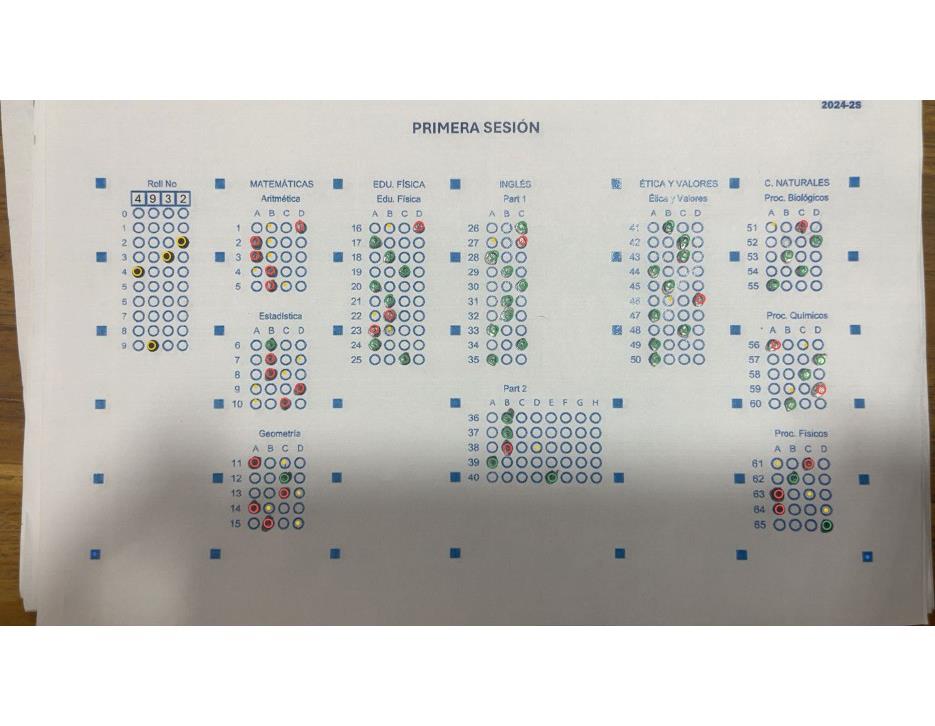 2024-2S
PRIMERA SESIÓN
Roll No
4 9 3 2
0
1
2
3
4
5
6
7
8
9
MATEMÁTICAS
Aritmética
A B C D
1
2
3
4
5
Estadística
A B C D
6
7
8
9
10
Geometría
A B C D
11
12
13
14
15
EDU. FÍSICA
Edu. Física
A B C D
16
17
18
19
20
21
22
23
24
25
INGLÉS
Part 1
A B C
26
27
28
29
30
31
32
33
34
35
Part 2
A B C D E F G H
36
37
38
39
40
ÉTICA Y VALORES
Ética y Valores
A B C D
41
42
43
44
45
46
47
48
49
50
C. NATURALES
Proc. Biológicos
A B C D
51
52
53
54
55
Proc. Químicos
A B C D
56
57
58
59
60
Proc. Físicos
A B C D
61
62
63
64
65